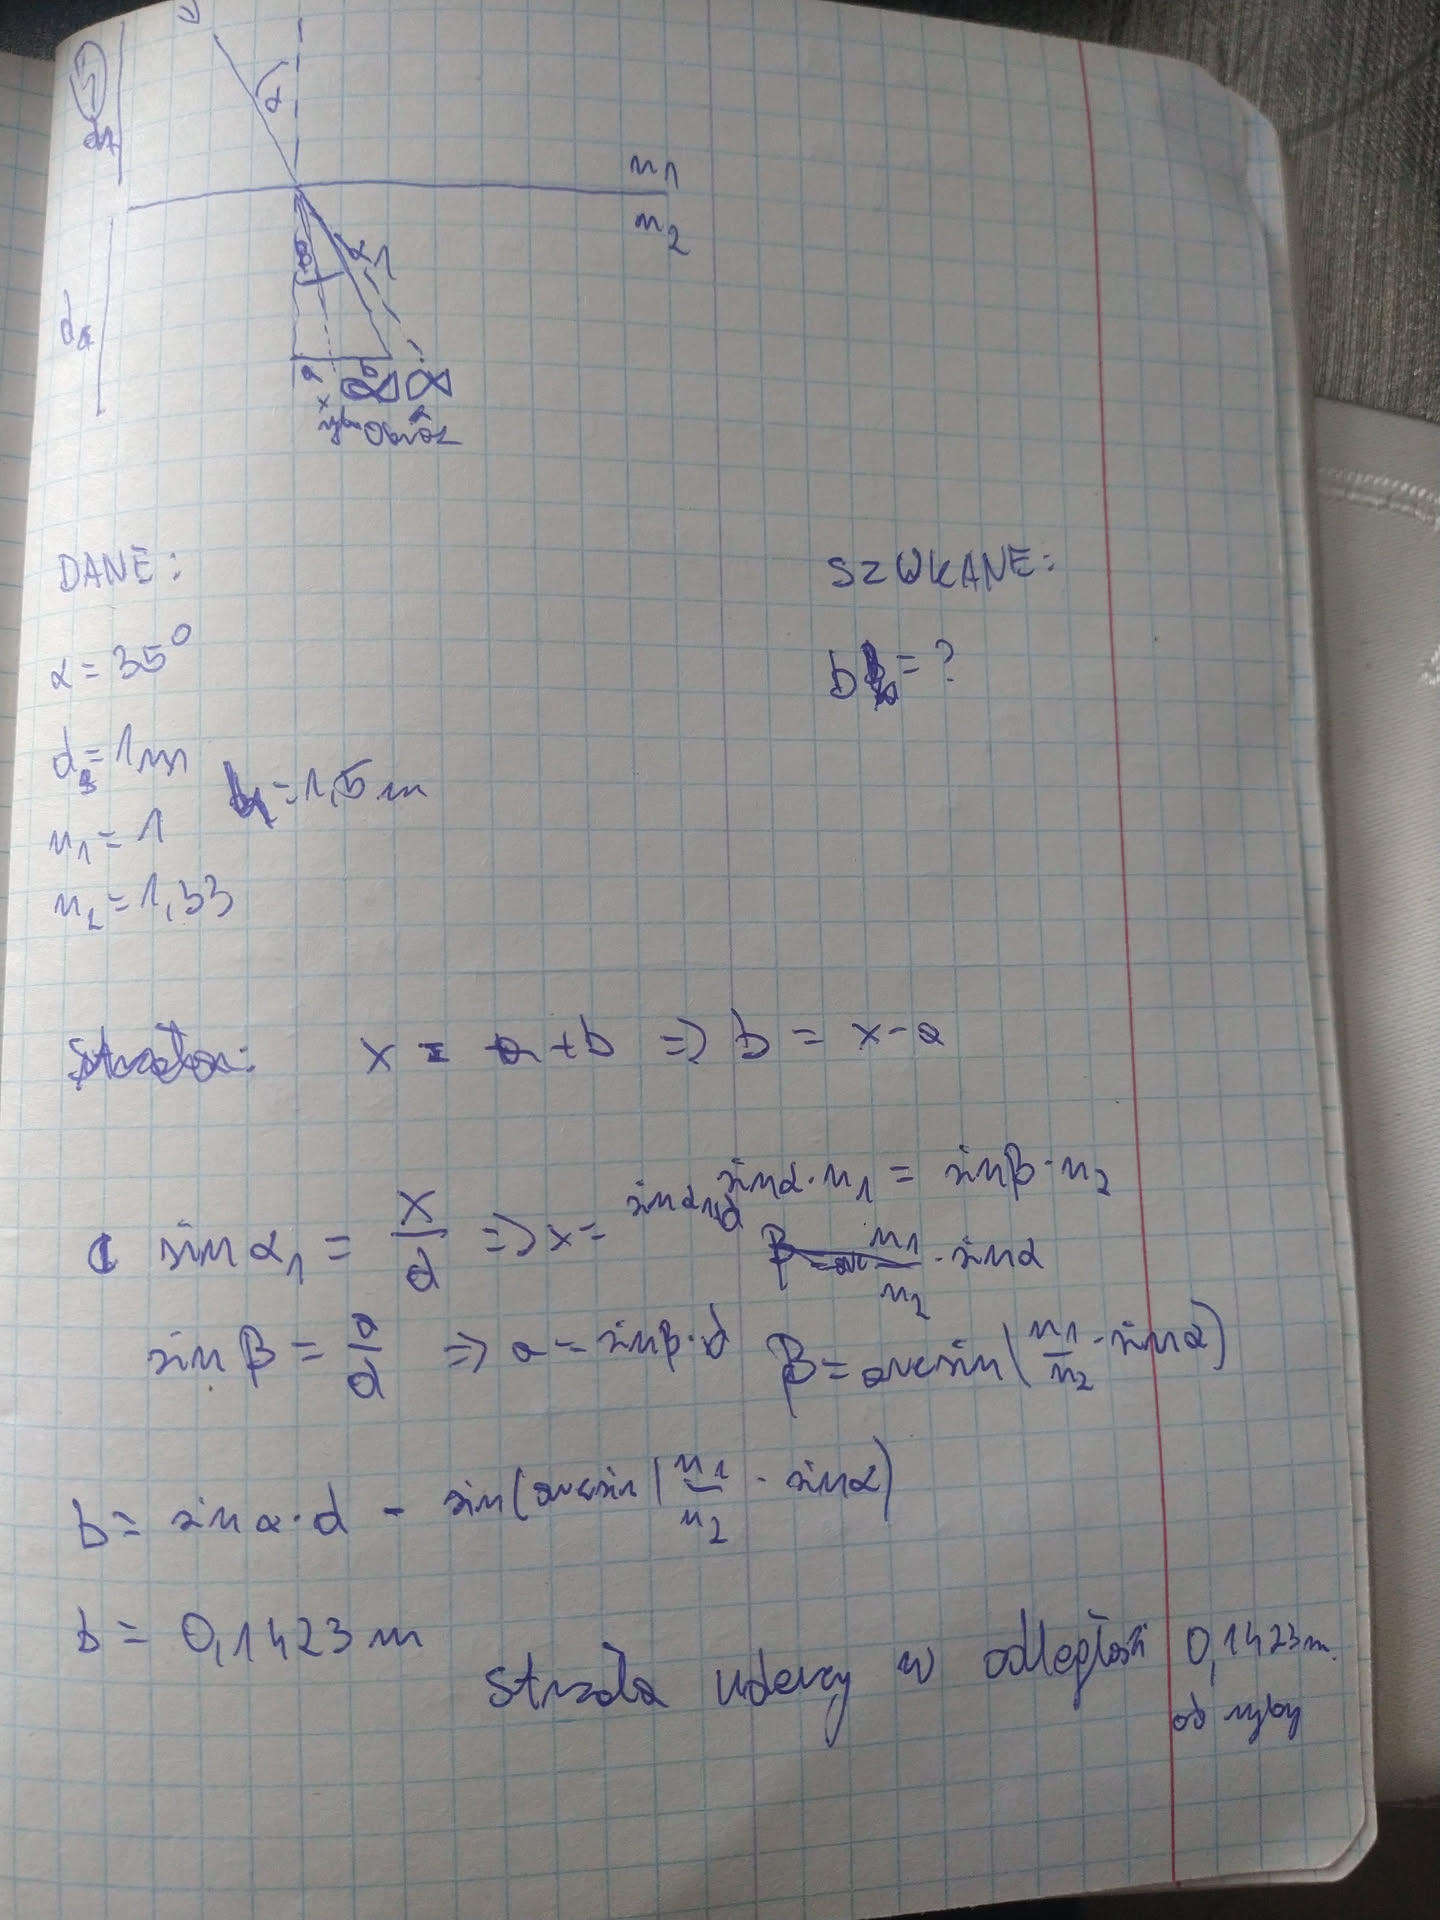 3
α
n1
n2
β
α1
a
b
x
ryba Obraz
DANE:
SZUKANE:
α = 35°
b = ?
d = 1m
= 1,5 m
n1 = 1
n2 = 1,33
Strzała: x = a + b => b = x - a
sinα·n1 = sinβ·n2
sin α1 = x/d => x = sinα1·d
n1/n2 · sinα
sin β = a/d => a = sinβ·d β = arcsin(n1/n2 · sinα)
b = sin α·d - sin(arcsin(n1/n2 · sinα)
b = 0,1423 m
Strzała uderzy w odległości 0,1423 m.
od ryby